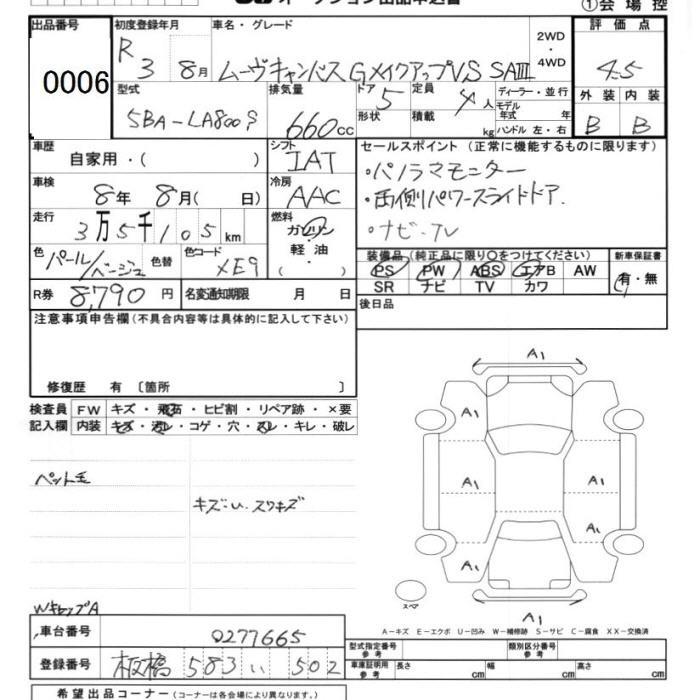 オークション出品申込書
①会場控
出品番号 初度登録年月 車名・グレード 評価点
0006 R 3 8月 ムーヴキャンバス GメイクアップVS SAⅢ 2WD・4WD 4.5
型式 排気量 ドア 定員 ディーラー・並行 外装 内装
5BA-LA800S 660cc 5 4人 モデル年式 年 B B
形状 積載 kg ハンドル 左・右
車歴 シフト セールスポイント (正常に機能するものに限ります)
自家用・( ) IAT ・パノラマモニター
車検 冷房
8年 8月( 日) AAC ・両側パワースライドドア.
走行 燃料
3万5千105km ガソリン・軽油・( ) ・ナビ・TV
色 色替 色コード 装備品 (純正品に限り○をつけてください) 新車保証書
パール/ベージュ XE9 PS PW ABS エアB AW 有・無
SR ナビ TV カワ
R券 8,790円 名変通知期限 月 日 後日品
注意事項申告欄 (不具合内容等は具体的に記入して下さい)
修復歴 有 〔箇所 〕
検査員 FW キズ・飛石・ヒビ割・リペア跡・×要
記入欄 内装 キズ・汚レ・コゲ・穴・スレ・キレ・破レ
ペット毛
キズ:u. スリキズ
WキャップA
A1
A1
A1 A1
A1
A1
A1
スペア
A-キズ E-エクボ U-凹み W-補修跡 S-サビ C-腐食 XX-交換済
車台番号 0277665
登録番号 板橋 583 い 502
型式指定番号参考 類別区分番号
車庫証明用参考 長さ cm 幅 cm 高さ cm
希望出品コーナー (コーナーは各会場により異なります。)